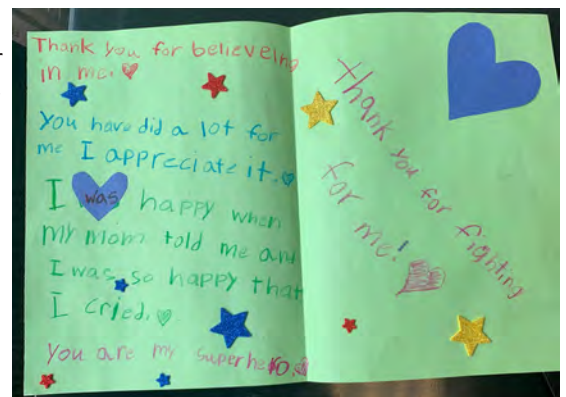 Thank you for believeing
in me!
You have did a lot for
me I appreciate it.
I was happy when
my mom told me and
I was so happy that
I cried.
You are my superhero.
Thank you for fighting
for me!